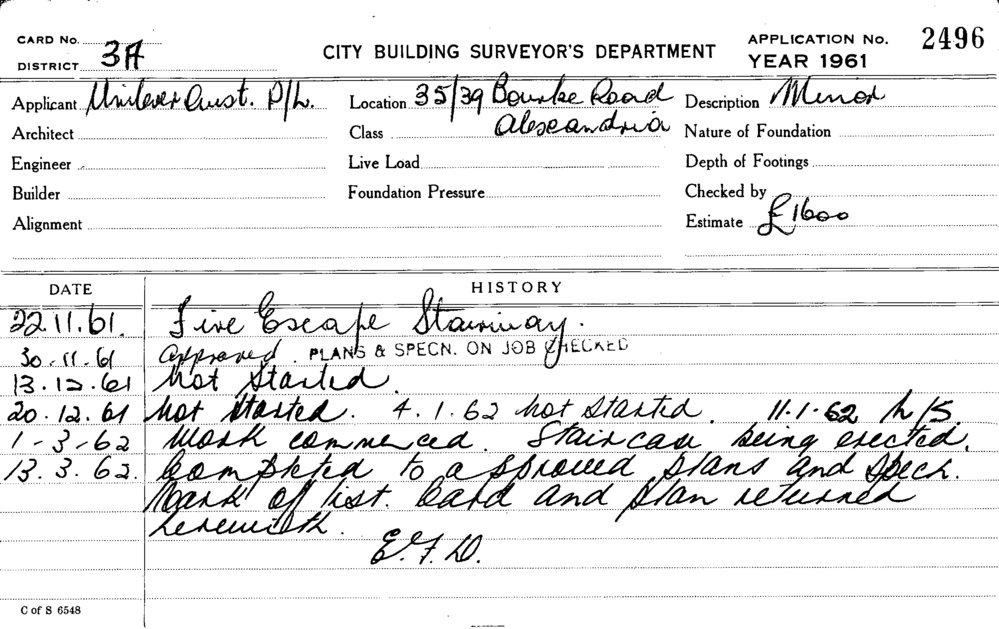 CARD No.
DISTRICT 3A
CITY BUILDING SURVEYOR'S DEPARTMENT
APPLICATION No. 2496
YEAR 1961
Applicant Unilever Aust. P/L. Location 35/39 Bourke Road Description Minor
Architect Class Alexandria Nature of Foundation
Engineer Live Load Depth of Footings
Builder Foundation Pressure Checked by
Alignment Estimate £1600
DATE HISTORY
22.11.61. Fire Escape Stairway.
30.11.61 Approved. PLANS & SPECN. ON JOB CHECKED
13.12.61 Not Started.
20.12.61 Not Started. 4.1.62 Not Started. 11.1.62 N/S
1-3-62 Work commenced. Staircase being erected.
13.3.62. Completed to approved plans and Specn.
Mark off list. Card and plan returned
herewith.
E.F.D.
C of S 6548